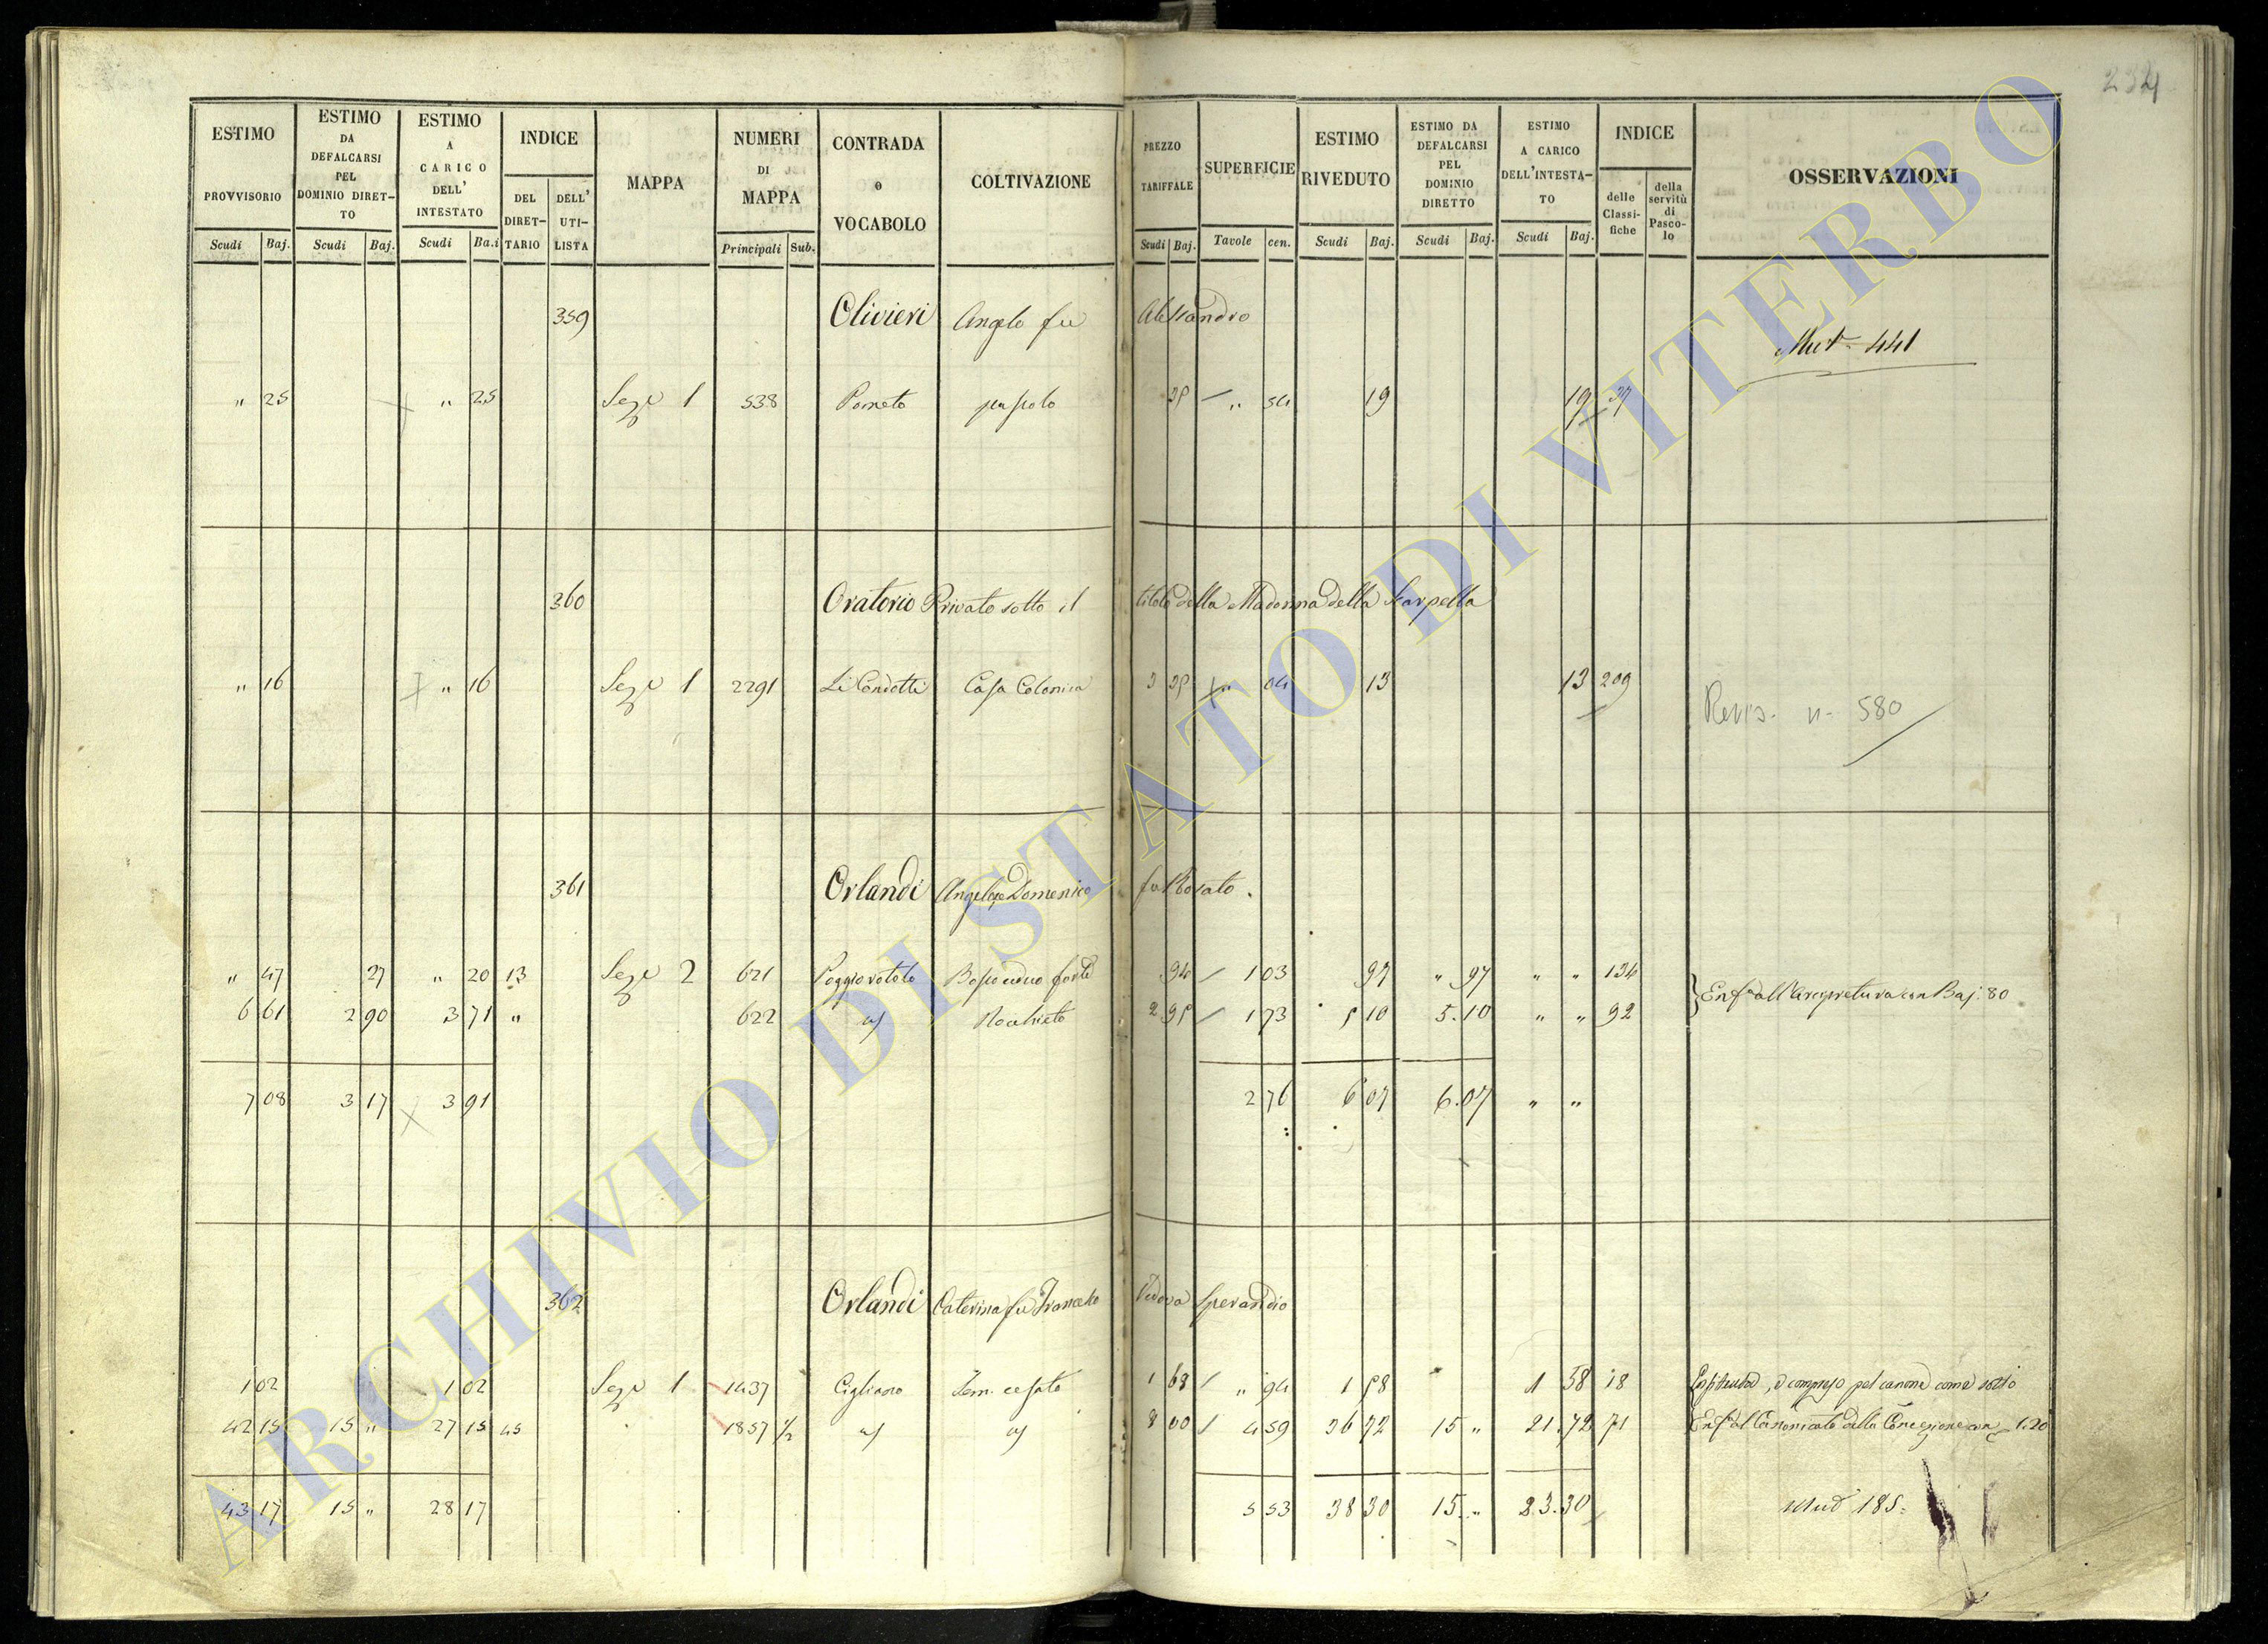 234
ESTIMO PROVVISORIO Scudi Baj.
ESTIMO DA DEFALCARSI PEL DOMINIO DIRETTO Scudi Baj.
ESTIMO A CARICO DELL' INTESTATO Scudi Ba.i
INDICE DEL DIRETTARIO DELL' UTILISTA
MAPPA
NUMERI DI MAPPA Principali Sub.
CONTRADA o VOCABOLO
COLTIVAZIONE
PREZZO TARIFFALE Scudi Baj.
SUPERFICIE Tavole cen.
ESTIMO RIVEDUTO Scudi Baj.
ESTIMO DA DEFALCARSI PEL DOMINIO DIRETTO Scudi Baj.
ESTIMO A CARICO DELL'INTESTATO Scudi Baj.
INDICE delle Classifiche della servitù di Pascolo
OSSERVAZIONI
359 Olivieri Angelo fu Alessandro
Mut. 441
" 25 " 25 Sez. 1 538 Porneto pascolo 35 " 54 19 19 37
360 Oratorio Privato sotto il titolo della Madonna della Scarpella
" 16 " 16 Sez. 1 2291 Li Condotti Casa Colonica 3 35 " 04 13 13 209
Revis. n. 580
361 Orlandi Angelo e Domenico fu Rosato.
" 47 27 " 20 13 Sez. 2 621 Poggiorotolo forte 94 1 03 97 " 97 " " 134
6 61 2 90 3 71 " 622 2 95 1 73 5 10 5.10 " " 92
Enf. all'Arcipretura con Baj: 80
7 08 3 17 3 91 2 76 6 07 6.07 " "
362 Orlandi Caterina fu Francesco Vedova Sperandio
1 02 1 02 Sez. 1 1437 Cigliano 1 68 " 94 1 58 1 58 18 compreso pel canone come sotto
42 15 15 " 27 15 45 1857 1/2 8 00 4 59 36 72 15 " 21.72 71 Enf. al Canonicato della Concezione con 1.20
43 17 15 " 28 17 5 53 38 30 15 " 23.30 Mut 185.
ARCHIVIO DI STATO DI VITERBO